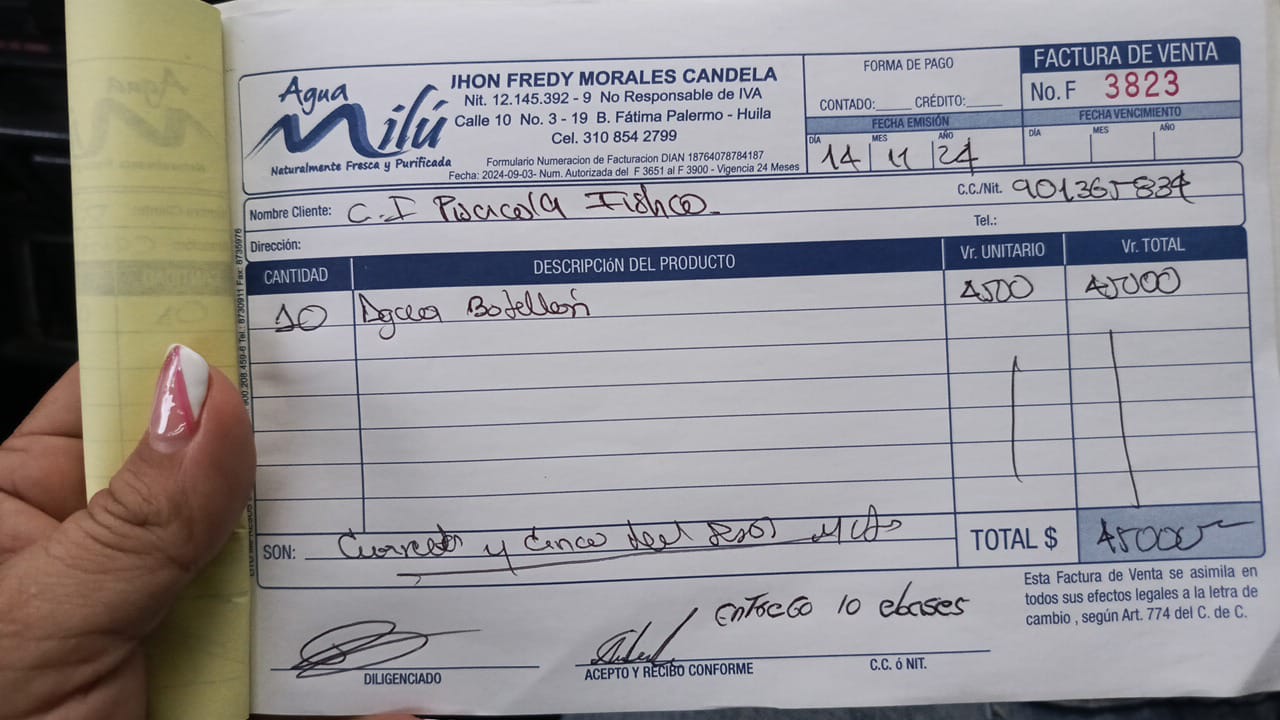 Agua
Milú
Naturalmente Fresca y Purificada
JHON FREDY MORALES CANDELA
Nit. 12.145.392 - 9 No Responsable de IVA
Calle 10 No. 3 - 19 B. Fátima Palermo - Huila
Cel. 310 854 2799
Formulario Numeracion de Facturacion DIAN 18764078784187
Fecha: 2024-09-03- Num. Autorizada del F 3651 al F 3900 - Vigencia 24 Meses
FORMA DE PAGO
CONTADO:_____ CRÉDITO:_____
FACTURA DE VENTA
No. F 3823
FECHA EMISIÓN
DÍA MES AÑO
14 11 24
FECHA VENCIMIENTO
DÍA MES AÑO
Nombre Cliente: C.I Piscicola Fishco.
C.C./Nit. 901365834
Tel.:
Dirección:
CANTIDAD DESCRIPCIÓN DEL PRODUCTO Vr. UNITARIO Vr. TOTAL
10 Agua Botellon 4500 45000
SON: Cuarenta y Cinco mil Pesos Mcte
TOTAL $ 45000
Esta Factura de Venta se asimila en
todos sus efectos legales a la letra de
cambio , según Art. 774 del C. de C.
EntreGo 10 ebases
DILIGENCIADO
ACEPTO Y RECIBO CONFORME
C.C. ó NIT.